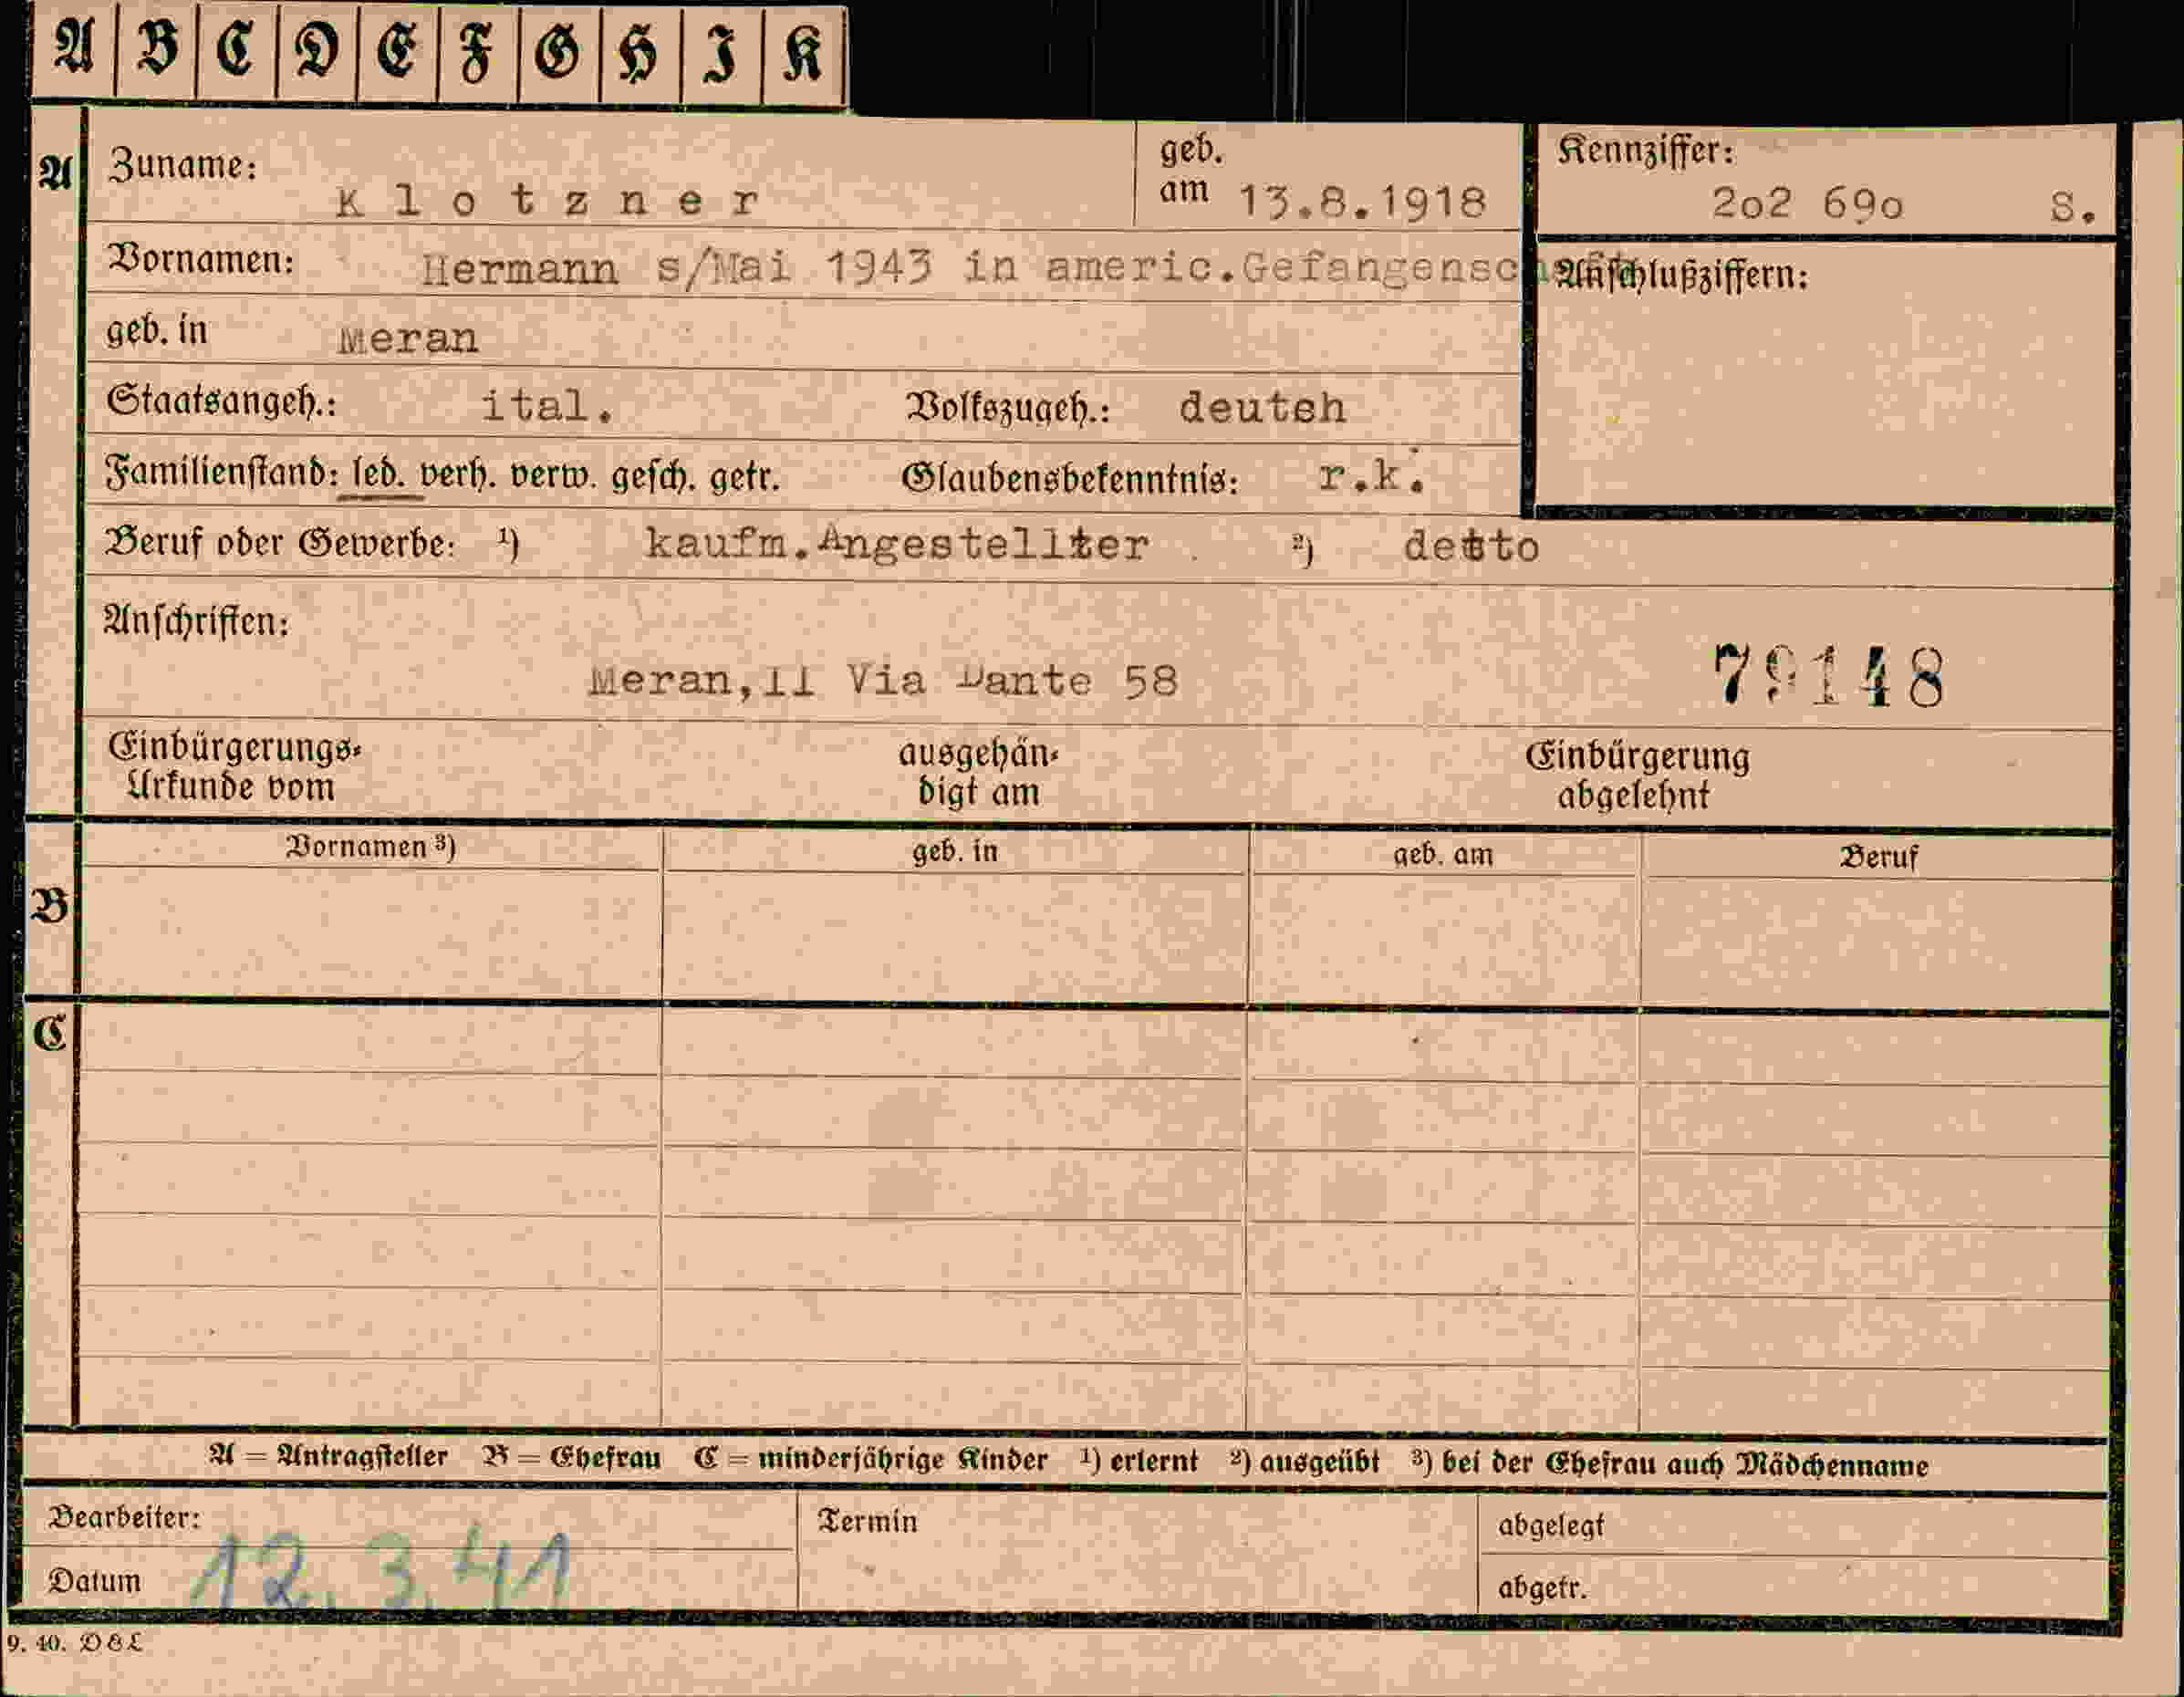 A B C D E F G H I K
A Zuname: Klotzner geb. am 13.8.1918 Kennziffer: 2o2 69o S.
Vornamen: Hermann s/Mai 1943 in americ.Gefangenschaft Anschlußziffern:
geb. in Meran
Staatsangeh.: ital. Volkszugeh.: deutsh
Familienstand: led. verh. verw. gesch. getr. Glaubensbekenntnis: r.k.
Beruf oder Gewerbe: 1) kaufm.Angestellter 2) detto
Anschriften:
Meran,II Via Dante 58 79148
Einbürgerungs-
Urkunde vom
ausgehän-
digt am
Einbürgerung
abgelehnt
Vornamen 3) geb. in geb. am Beruf
B
C
A = Antragsteller B = Ehefrau C = minderjährige Kinder 1) erlernt 2) ausgeübt 3) bei der Ehefrau auch Mädchenname
Bearbeiter: Termin abgelegt
Datum 12.3.41 abgetr.
9. 40. D&L